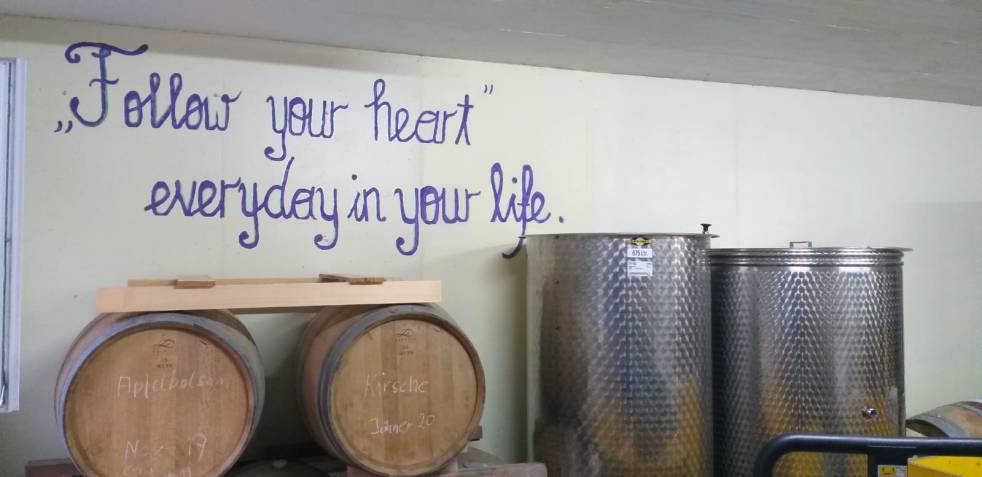 „Follow your heart"
everyday in your life.
Apfelbalsam
Nov 19
Kirsche
Jänner 20